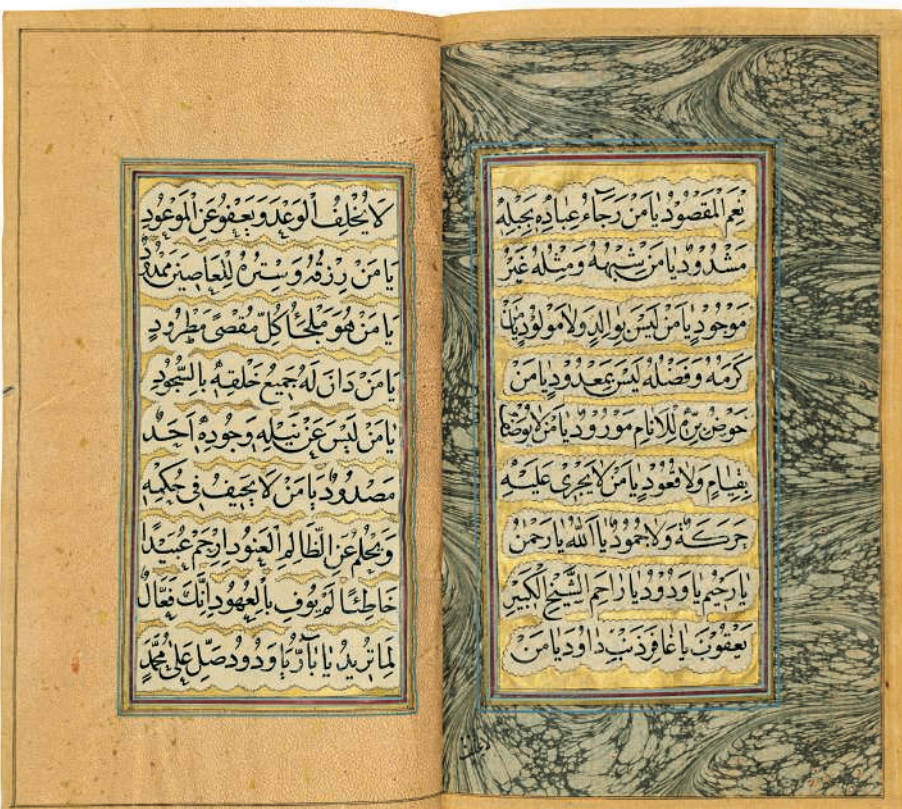 نِعْمَ الْمَقْصُودُ يَا مَنْ رَجَاءُ عِبَادِهِ بِحَبْلِهِ
مَشْدُودٌ يَا مَنْ شِبْهُهُ وَمِثْلُهُ غَيْرُ
مَوْجُودٍ يَا مَنْ لَيْسَ بِوَالِدٍ وَلَا مَوْلُودٍ يَا مَنْ
كَرَمُهُ وَفَضْلُهُ لَيْسَ بِمَعْدُودٍ يَا مَنْ
حَوْضُ بِرِّهِ لِلْاَنَامِ مَوْرُودٌ يَا مَنْ لَا يُوصَفُ
بِقِيَامٍ وَلَا قُعُودٍ يَا مَنْ لَا يَجْرِى عَلَيْهِ
حَرَكَةٌ وَلَا جُمُودٌ يَا اَللّٰهُ يَا رَحْمٰنُ
يَا رَحِيمُ يَا وَدُودُ يَا رَاحِمَ الشَّيْخِ الْكَبِيرِ
يَعْقُوبَ يَا غَافِرَ ذَنْبِ دَاوُدَ يَا مَنْ
لَا يُخْلِفُ الْوَعْدَ وَيَعْفُو عَنِ الْمَوْعُودِ
يَا مَنْ رِزْقُهُ وَسِتْرُهُ لِلْعَاصِينَ مَمْدُودٌ
يَا مَنْ هُوَ مَلْجَأُ كُلِّ مُقْصًى مَطْرُودٍ
يَا مَنْ دَانَ لَهُ جَمِيعُ خَلْقِهِ بِالسُّجُودِ
يَا مَنْ لَيْسَ عَنْ نَيْلِهِ وَجُودِهِ اَحَدٌ
مَصْدُودٌ يَا مَنْ لَا يَحِيفُ فِى حُكْمِهِ
وَيَحْلُمُ عَنِ الظَّالِمِ الْعَنُودِ اِرْحَمْ عُبَيْدًا
خَاطِئًا لَمْ يُوفِ بِالْعُهُودِ اِنَّكَ فَعَّالٌ
لِمَا تُرِيدُ يَا بَارُّ يَا وَدُودُ صَلِّ عَلٰى مُحَمَّدٍ